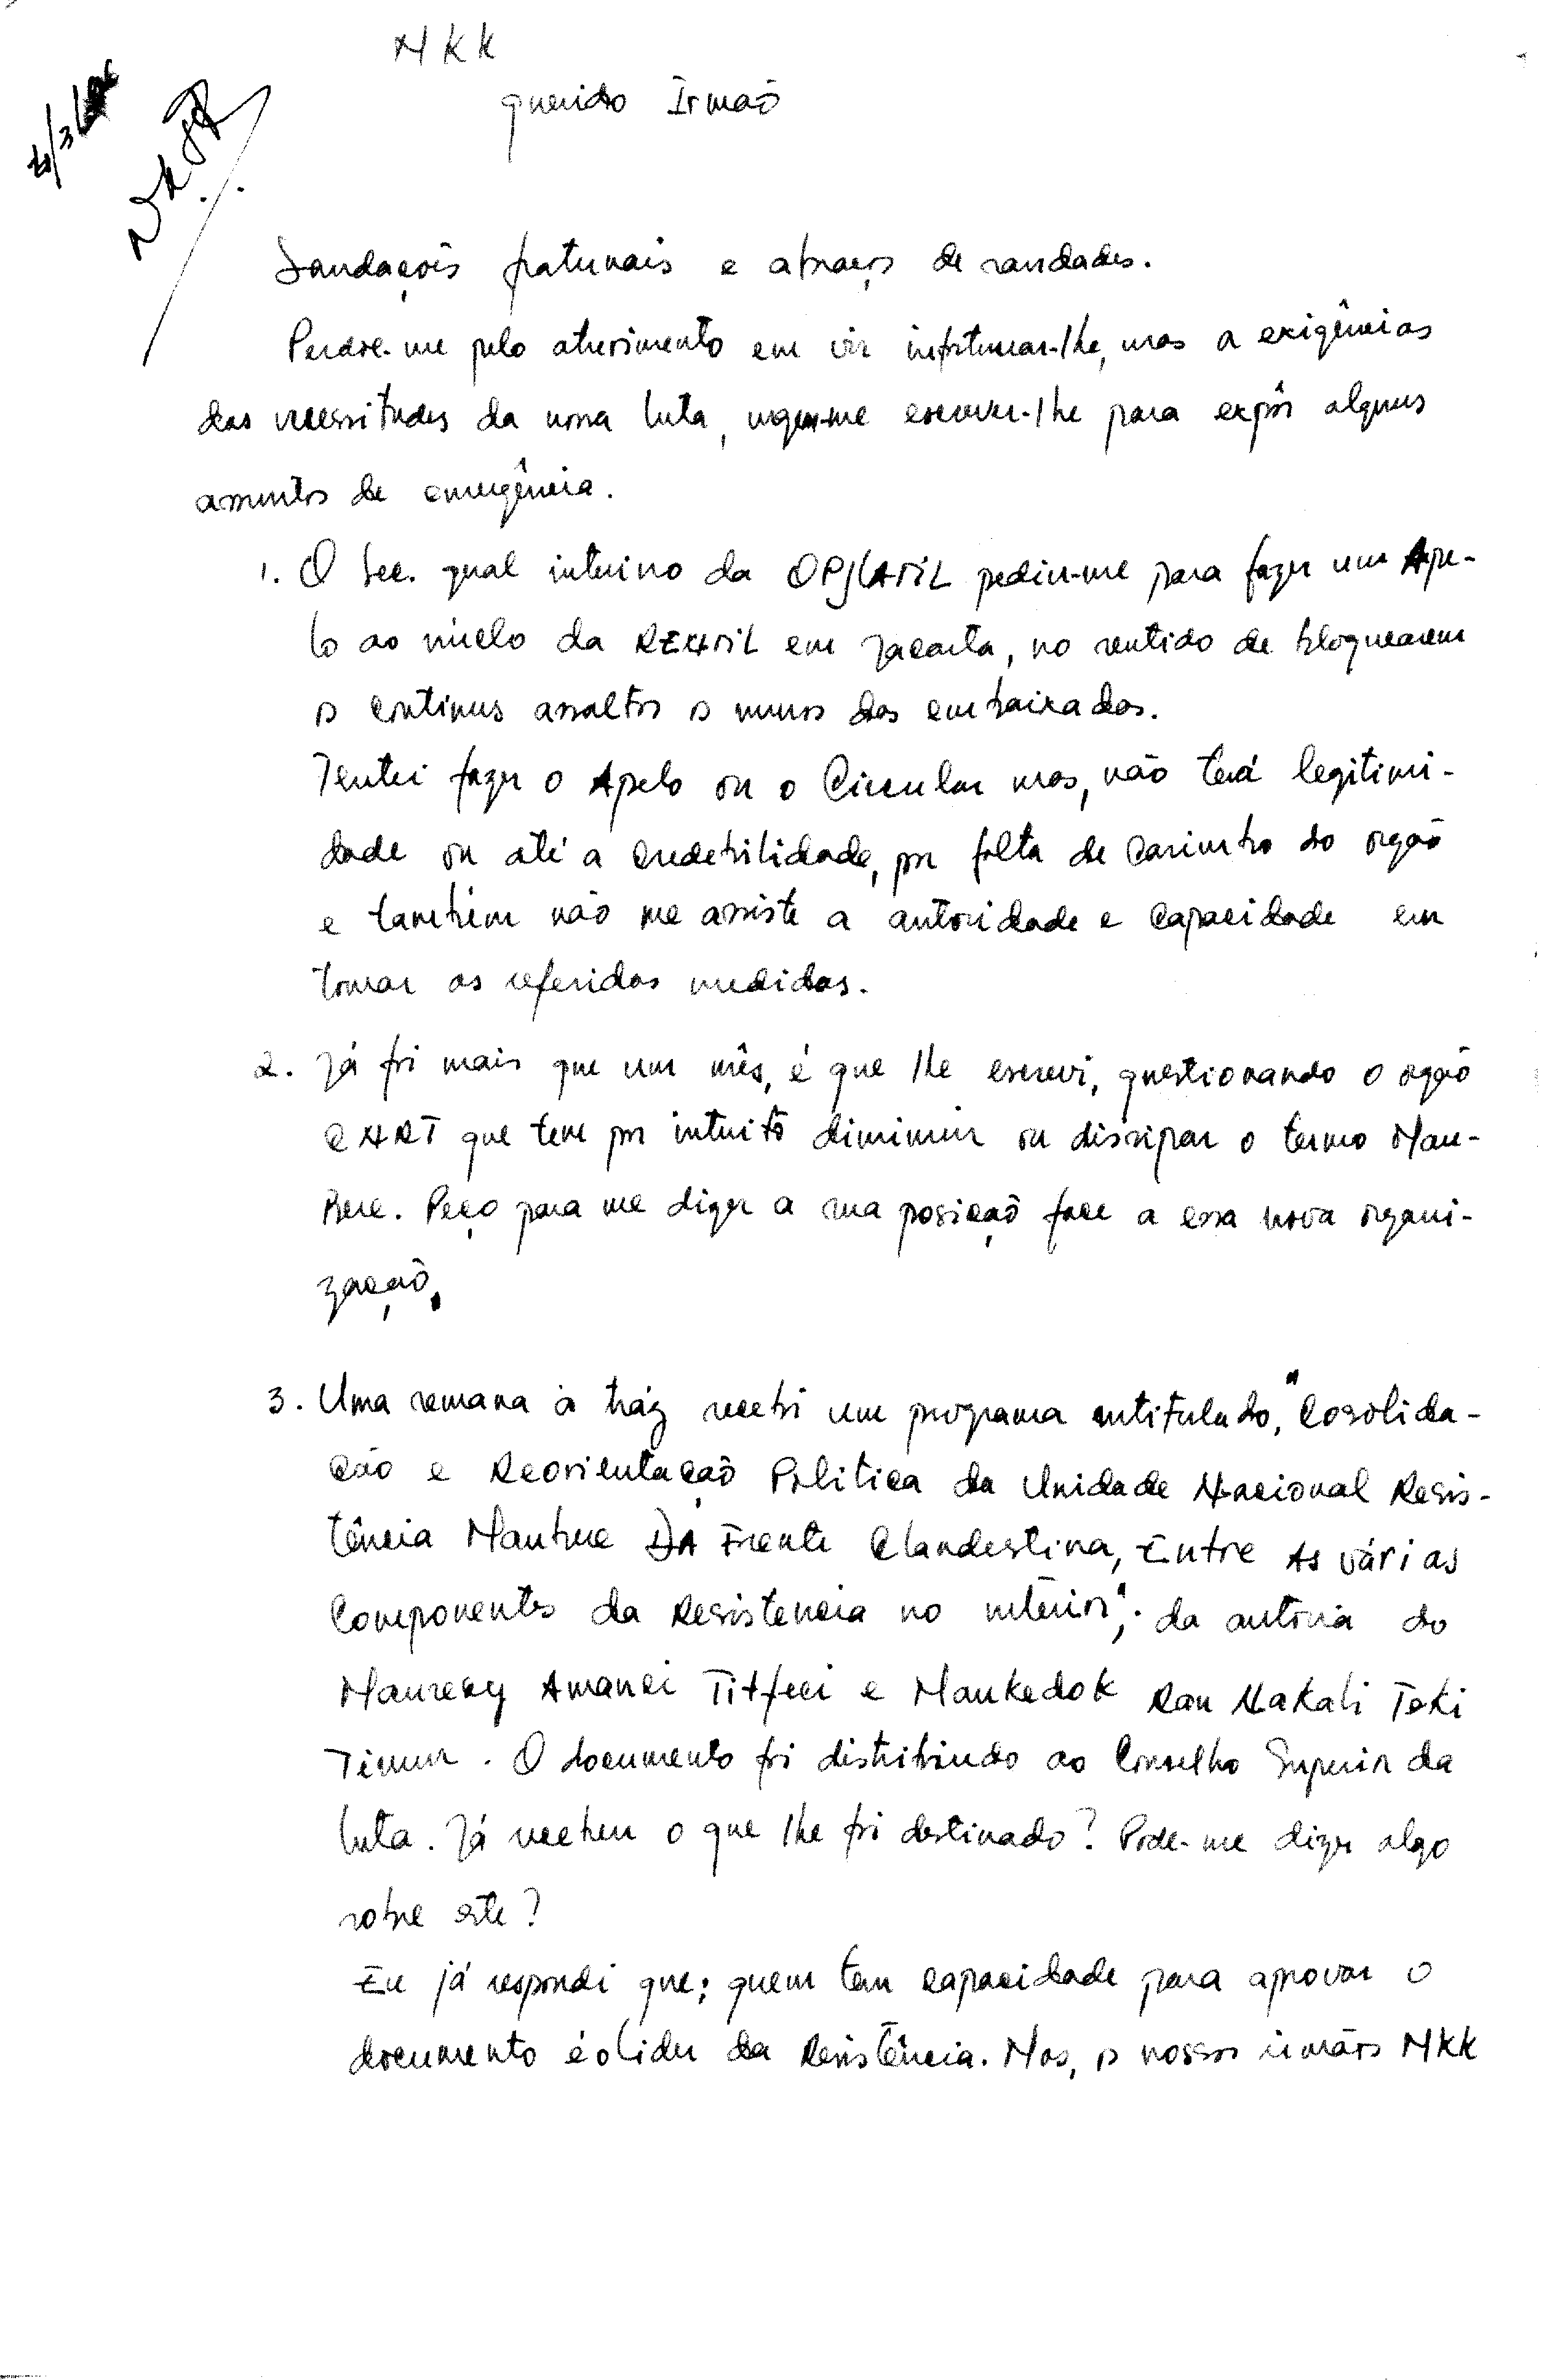 MKK
querido Irmaõ
Saudaçoẽs fraternais e abraços de saudades.
Perdoe-me pelo atrevimento em vir infortunar-lhe, mas a exigências
das necessitudes da nossa luta, urgem-me escrever-lhe para expôr alguns
assuntos de emergência.
1. O Sec. geral interino da OPJLATIL pediu-me para fazer um Ape-
lo ao núcelo da RENETIL em Jacarta, no sentido de bloquearem
os contínuos assaltos os muros das embaixadas.
Tentei fazer o Apelo ou o Circular mas, não terá legitimi-
dade ou até a credebilidade, por falta de carimbo do orgaõ
e também não me assiste a autoridade e capacidade em
tomar as referidas medidas.
2. Já foi mais que um mês, é que lhe escrevi, questionando o orgaõ
CNRT que tem por intuito diminuir ou dissipar o termo Mau-
Bere. Peço para me dizer a sua posiçaõ face a essa nova organi-
zaçaõ.
3. Uma semana à tráz recebi um programa entitulado, "Cosolida-
ção e Reorientaçaõ Politica da Unidade Nacional Resis-
tência Maubere DA Frente Clandestina, Entre As várias
Componentes da Resistencia no interior"; da autoria do
Maureky Amanci Titfeei e Maukedok Ran Nakali Teki
Timur. O documento foi distribuido ao Conselho Superior da
luta. Já recebeu o que lhe foi destinado? Pode-me dizer algo
sobre este?
Eu já respondi que; quem tem capacidade para aprovar o
documento é o lider da Resistência. Mas, os nossos irmãos MKK